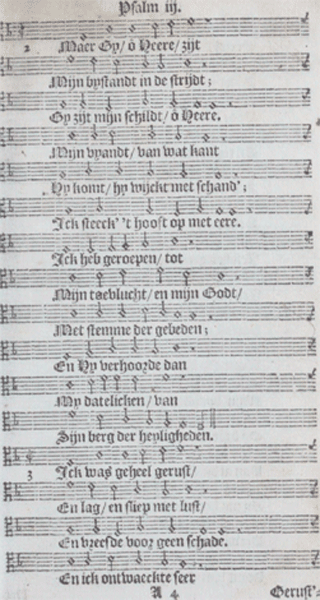 Psalm iij.
2 Maer Gy/ ô Heere/ zijt
Mijn bystandt in de strijdt;
Gy zijt mijn schildt/ ô Heere.
Mijn vyandt/ van wat kant
Hy komt/ hy wijckt met schand';
Ick steeck' 't hooft op met eere.
Ick heb geroepen/ tot
Mijn toevlucht/ en mijn Godt/
Met stemme der gebeden;
En Hy verhoorde dan
My datelicken/ van
Sijn berg der heyligheden.
3 Ick was geheel gerust/
En lag/ en sliep met lust/
En vreesde voor geen schade.
En ick ontwaeckte seer
A 4 Gerust'